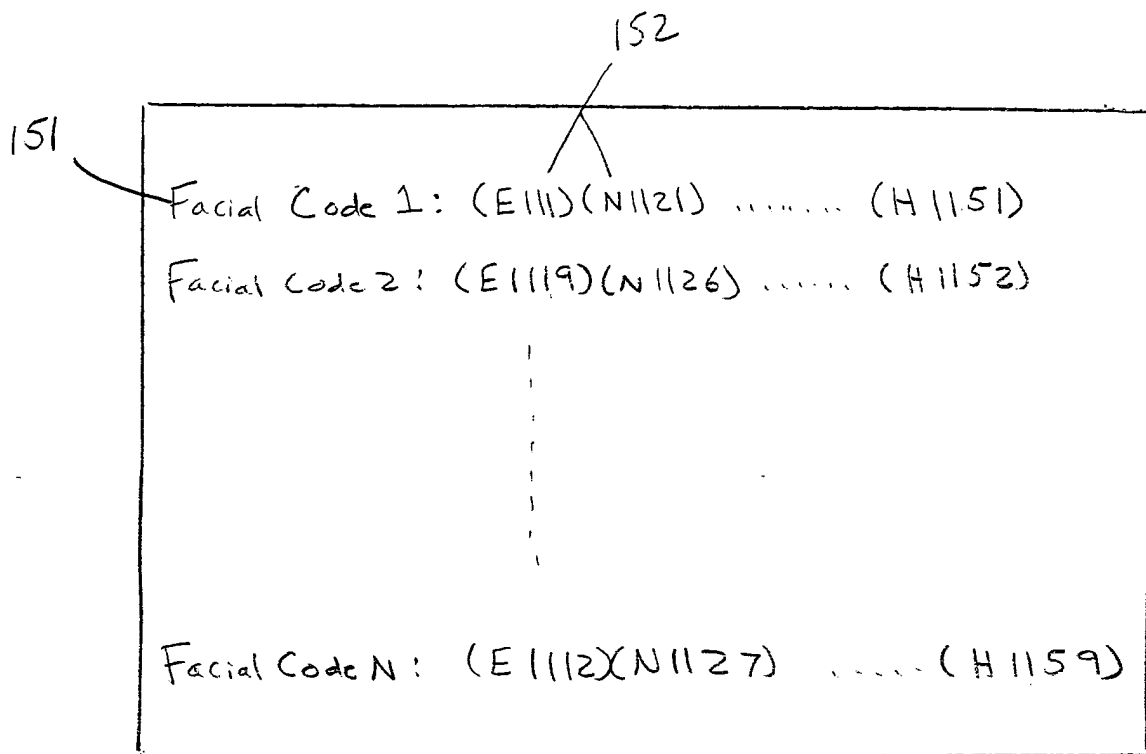 152
151
Facial Code 1: (E111)(N1121) ........ (H1151)
Facial Code 2: (E1119)(N1126) ...... (H1152)
Facial Code N: (E1112)(N1127) ..... (H1159)